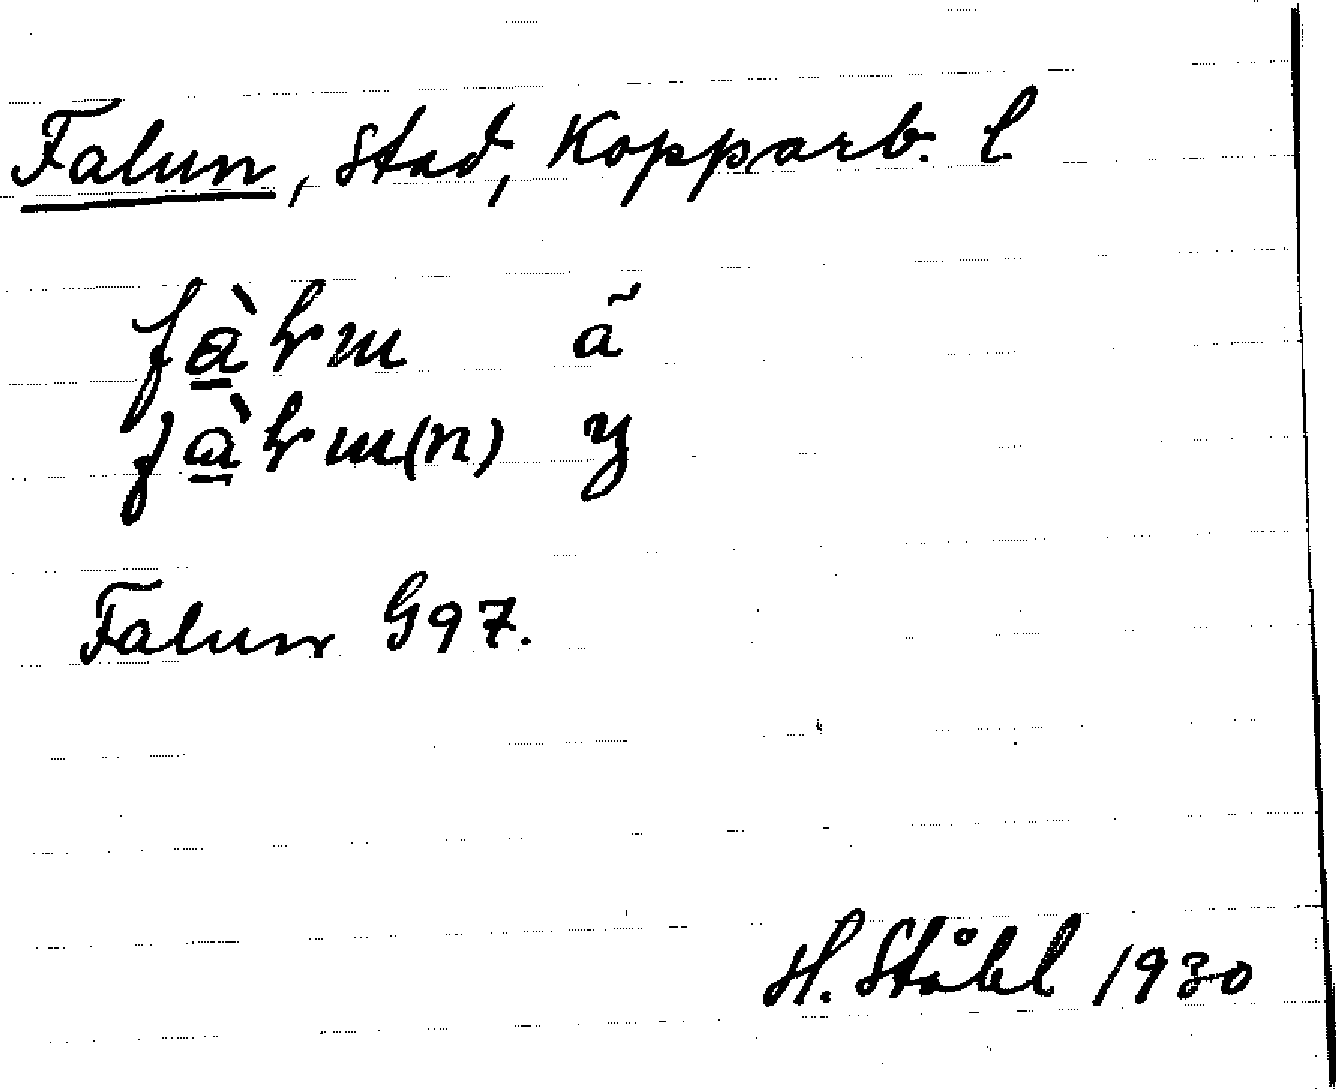 Falun, stad, Kopparb. l.
ã
y
Falun G97.
H. Ståhl 1930